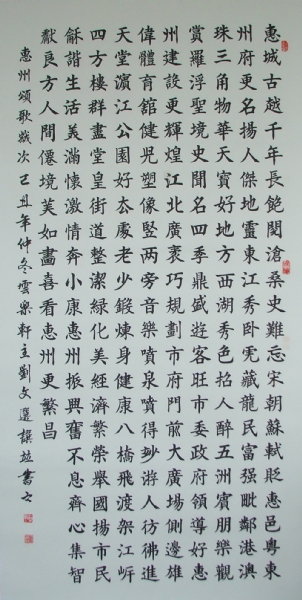 惠城古越千年長飽閱滄桑史難忘宋朝蘇軾貶惠邑粵東
州府更名揚人傑地靈東江秀卧虎藏龍民富强毗鄰港澳
珠三角物華天寶好地方西湖秀色招人醉五洲賓朋樂觀
賞羅浮聖境史聞名四季鼎盛遊客旺市委政府領導好惠
州建設更輝煌江北廣袤巧規劃市府門前大廣場側邊雄
偉體育館健兒塑像竪兩旁音樂噴泉噴得妙游人彷彿進
天堂濱江公園好去處老少鍛煉身健康八橋飛渡架江岸
四方樓群畫堂皇街道整潔綠化美經濟繁榮舉國揚市民
龢諧生活美滿懷激情奔小康惠州振興奮不息齊心集智
獻良方人間僊境美如畫喜看惠州更繁昌
惠州頌歌歲次己丑年仲冬雲樂軒主劉文選撰並書